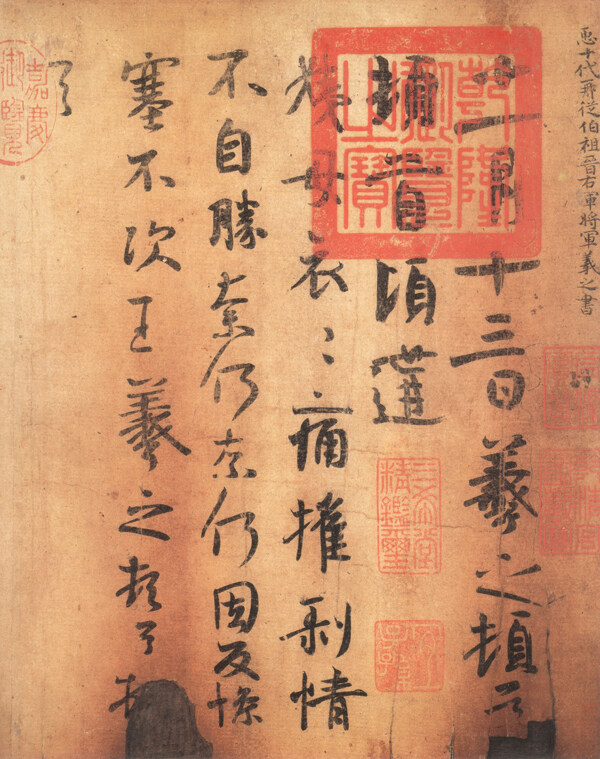 𢘑十代再從伯祖晉右軍將軍羲之書
十一月十三日羲之頓首
頓首頃遘
姨母哀〻痛摧剝情
不自勝奈何奈何因反慘
塞不次王羲之頓首頓
首
乾隆
御覽
之寶
三希堂
精鑑璽
宜子孫
嘉慶
御覽